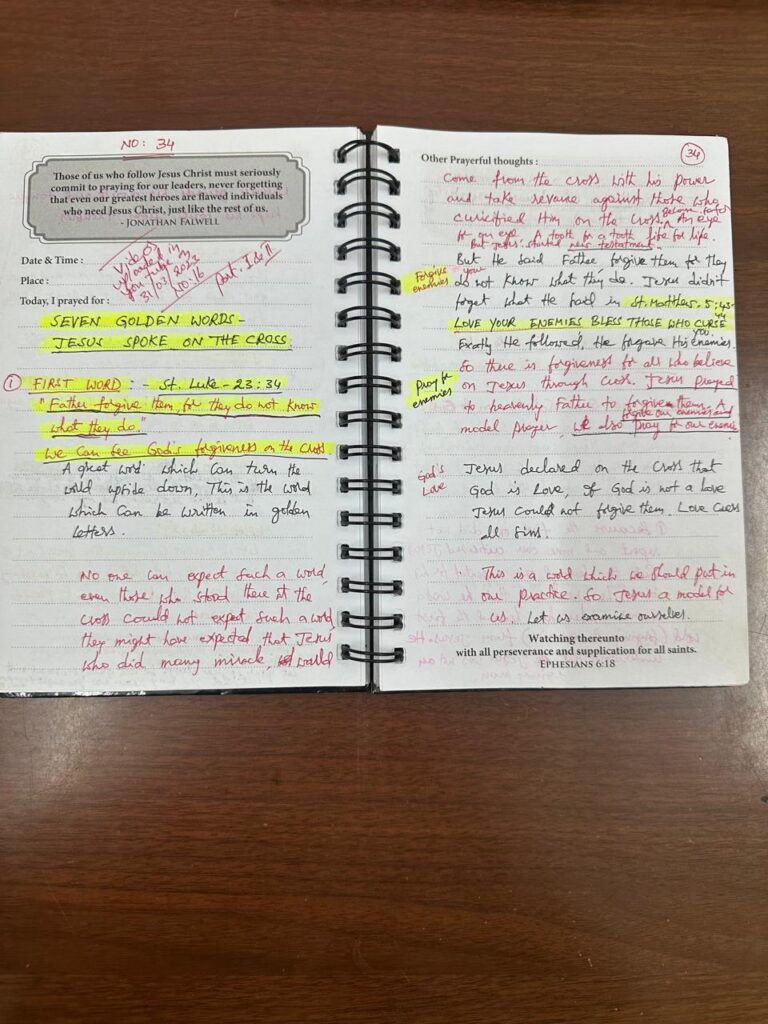 NO: 34
Those of us who follow Jesus Christ must seriously
commit to praying for our leaders, never forgetting
that even our greatest heroes are flawed individuals
who need Jesus Christ, just like the rest of us.
- JONATHAN FALWELL
Date & Time :
Place :
Today, I prayed for :
Video's
uploaded in
you tube in
31/03/2023
NO:16
part. I & II
SEVEN GOLDEN WORDS -
JESUS SPOKE ON THE CROSS.
1 FIRST WORD : - St. Luke - 23:34
"Father forgive them, for they do not know
what they do."
We can see God's forgiveness on the cross
A great word which can turn the
world upside down, This is the word
which can be written in golden
letters.
No one can expect such a word,
even those who stood there at the
cross could not expect such a word
they might have expected that Jesus
who did many miracle, would
34
Other Prayerful thoughts :
Come from the cross with his power
and take revenge against those who
curicified Him on the cross. An eye
for an eye. A tooth for a tooth life for life.
But Jesus started new testatment.
But He said Father forgive them for they
Forgive
enemies
do not know what they do. Jesus didn't
forget what He had in St. Matthew. 5:43-
44
LOVE YOUR ENEMIES BLESS THOSE WHO CURSE
YOU.
Exatly He followed. He forgave His enemies.
So there is forgiveness for all who believe
Pray for
enemies
on Jesus through cross. Jesus prayed
to heavenly Father to forgive them. A
forgive our enemies and
model prayer, we also pray for our enemies
God's
Love
Jesus declared on the cross that
God is Love, if God is not a love
Jesus could not forgive them. Love
all sins.
This is a word which we should put in
our practice. So Jesus a model for
us. Let us examine ourselves.
Watching thereunto
with all perseverance and supplication for all saints.
EPHESIANS 6:18